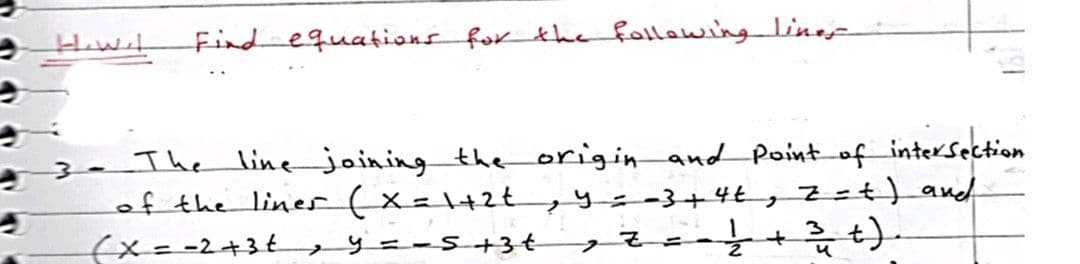 H.W.1 Find equations for the following lines
3- The line joining the origin and point of intersection
of the lines ( x = 1+2t , y = -3+4t , z = t ) and
( x = -2+3t , y = -5+3t , z = -1/2 + 3/4 t ).